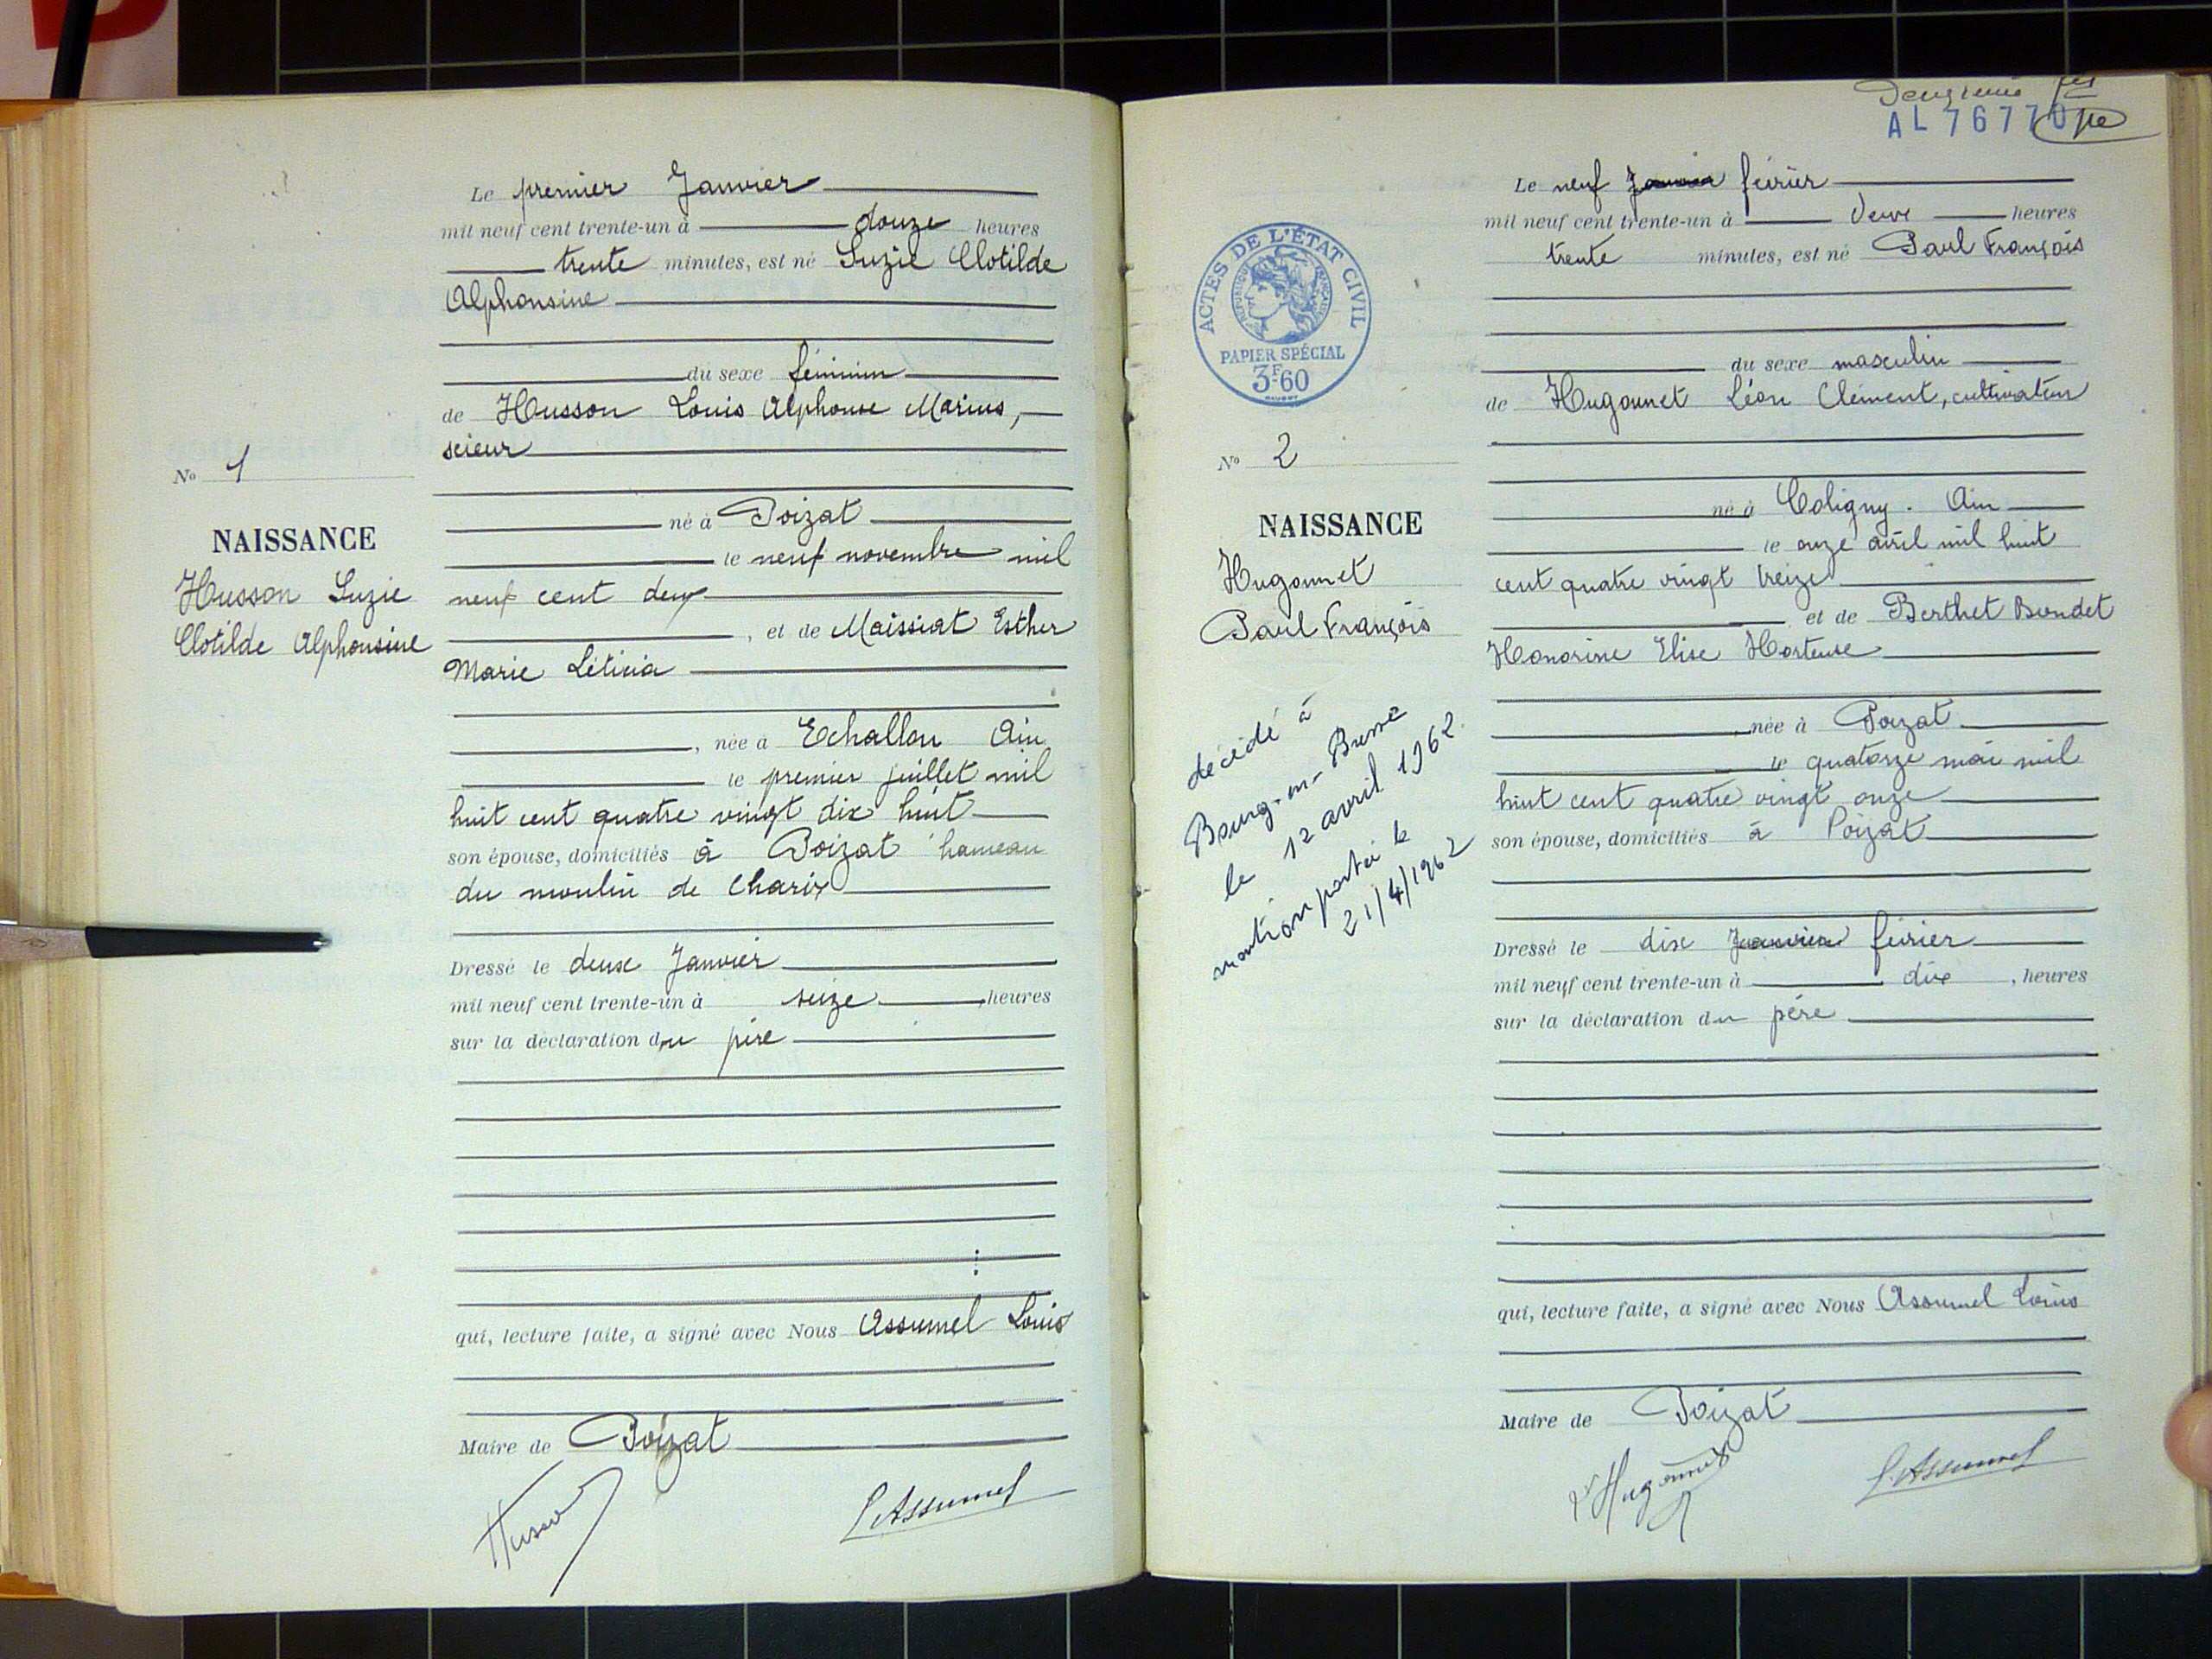 Le premier Janvier
mil neuf cent trente-un à douze heures
trente minutes, est né Suzie Clotilde
Alphonsine
du sexe féminin
de Husson Louis Alphonse Marius,
scieur
né à Poizat
le neuf novembre mil
neuf cent deux
, et de Maissiat Esther
Marie Léticia
, née à Echallon Ain
le premier juillet mil
huit cent quatre vingt dix huit
son épouse, domiciliés à Poizat hameau
du moulin de Charix
Dressé le deux Janvier
mil neuf cent trente-un à seize heures
sur la déclaration du père
qui, lecture faite, a signé avec Nous Assumel Louis
Maire de Poizat
Husson
L Assumel
No 1
NAISSANCE
Husson Suzie
Clotilde Alphonsine
Deuxième
AL 76770
ACTES DE L'ÉTAT CIVIL
RÉPUBLIQUE FRANÇAISE
PAPIER SPÉCIAL
3F60
No 2
NAISSANCE
Hugonnet
Paul François
décédé à
Bourg-en-Bresse
le 12 avril 1962.
mention portée le
21/4/1962
Le neuf Janvier février
mil neuf cent trente-un à heures
trente minutes, est né Paul François
du sexe masculin
de Hugonnet Léon Clément, cultivateur
né à Coligny. Ain
le onze avril mil huit
cent quatre vingt treize
et de Berthet Bondet
Honorine Elise Hortense
née à Poizat
le quatorze mai mil
huit cent quatre vingt onze
son épouse, domiciliés à Poizat
Dressé le dix Janvier février
mil neuf cent trente-un à dix, heures
sur la déclaration du père
qui, lecture faite, a signé avec Nous Assumel Louis
Maire de Poizat
Hugonnet
L. Assumel